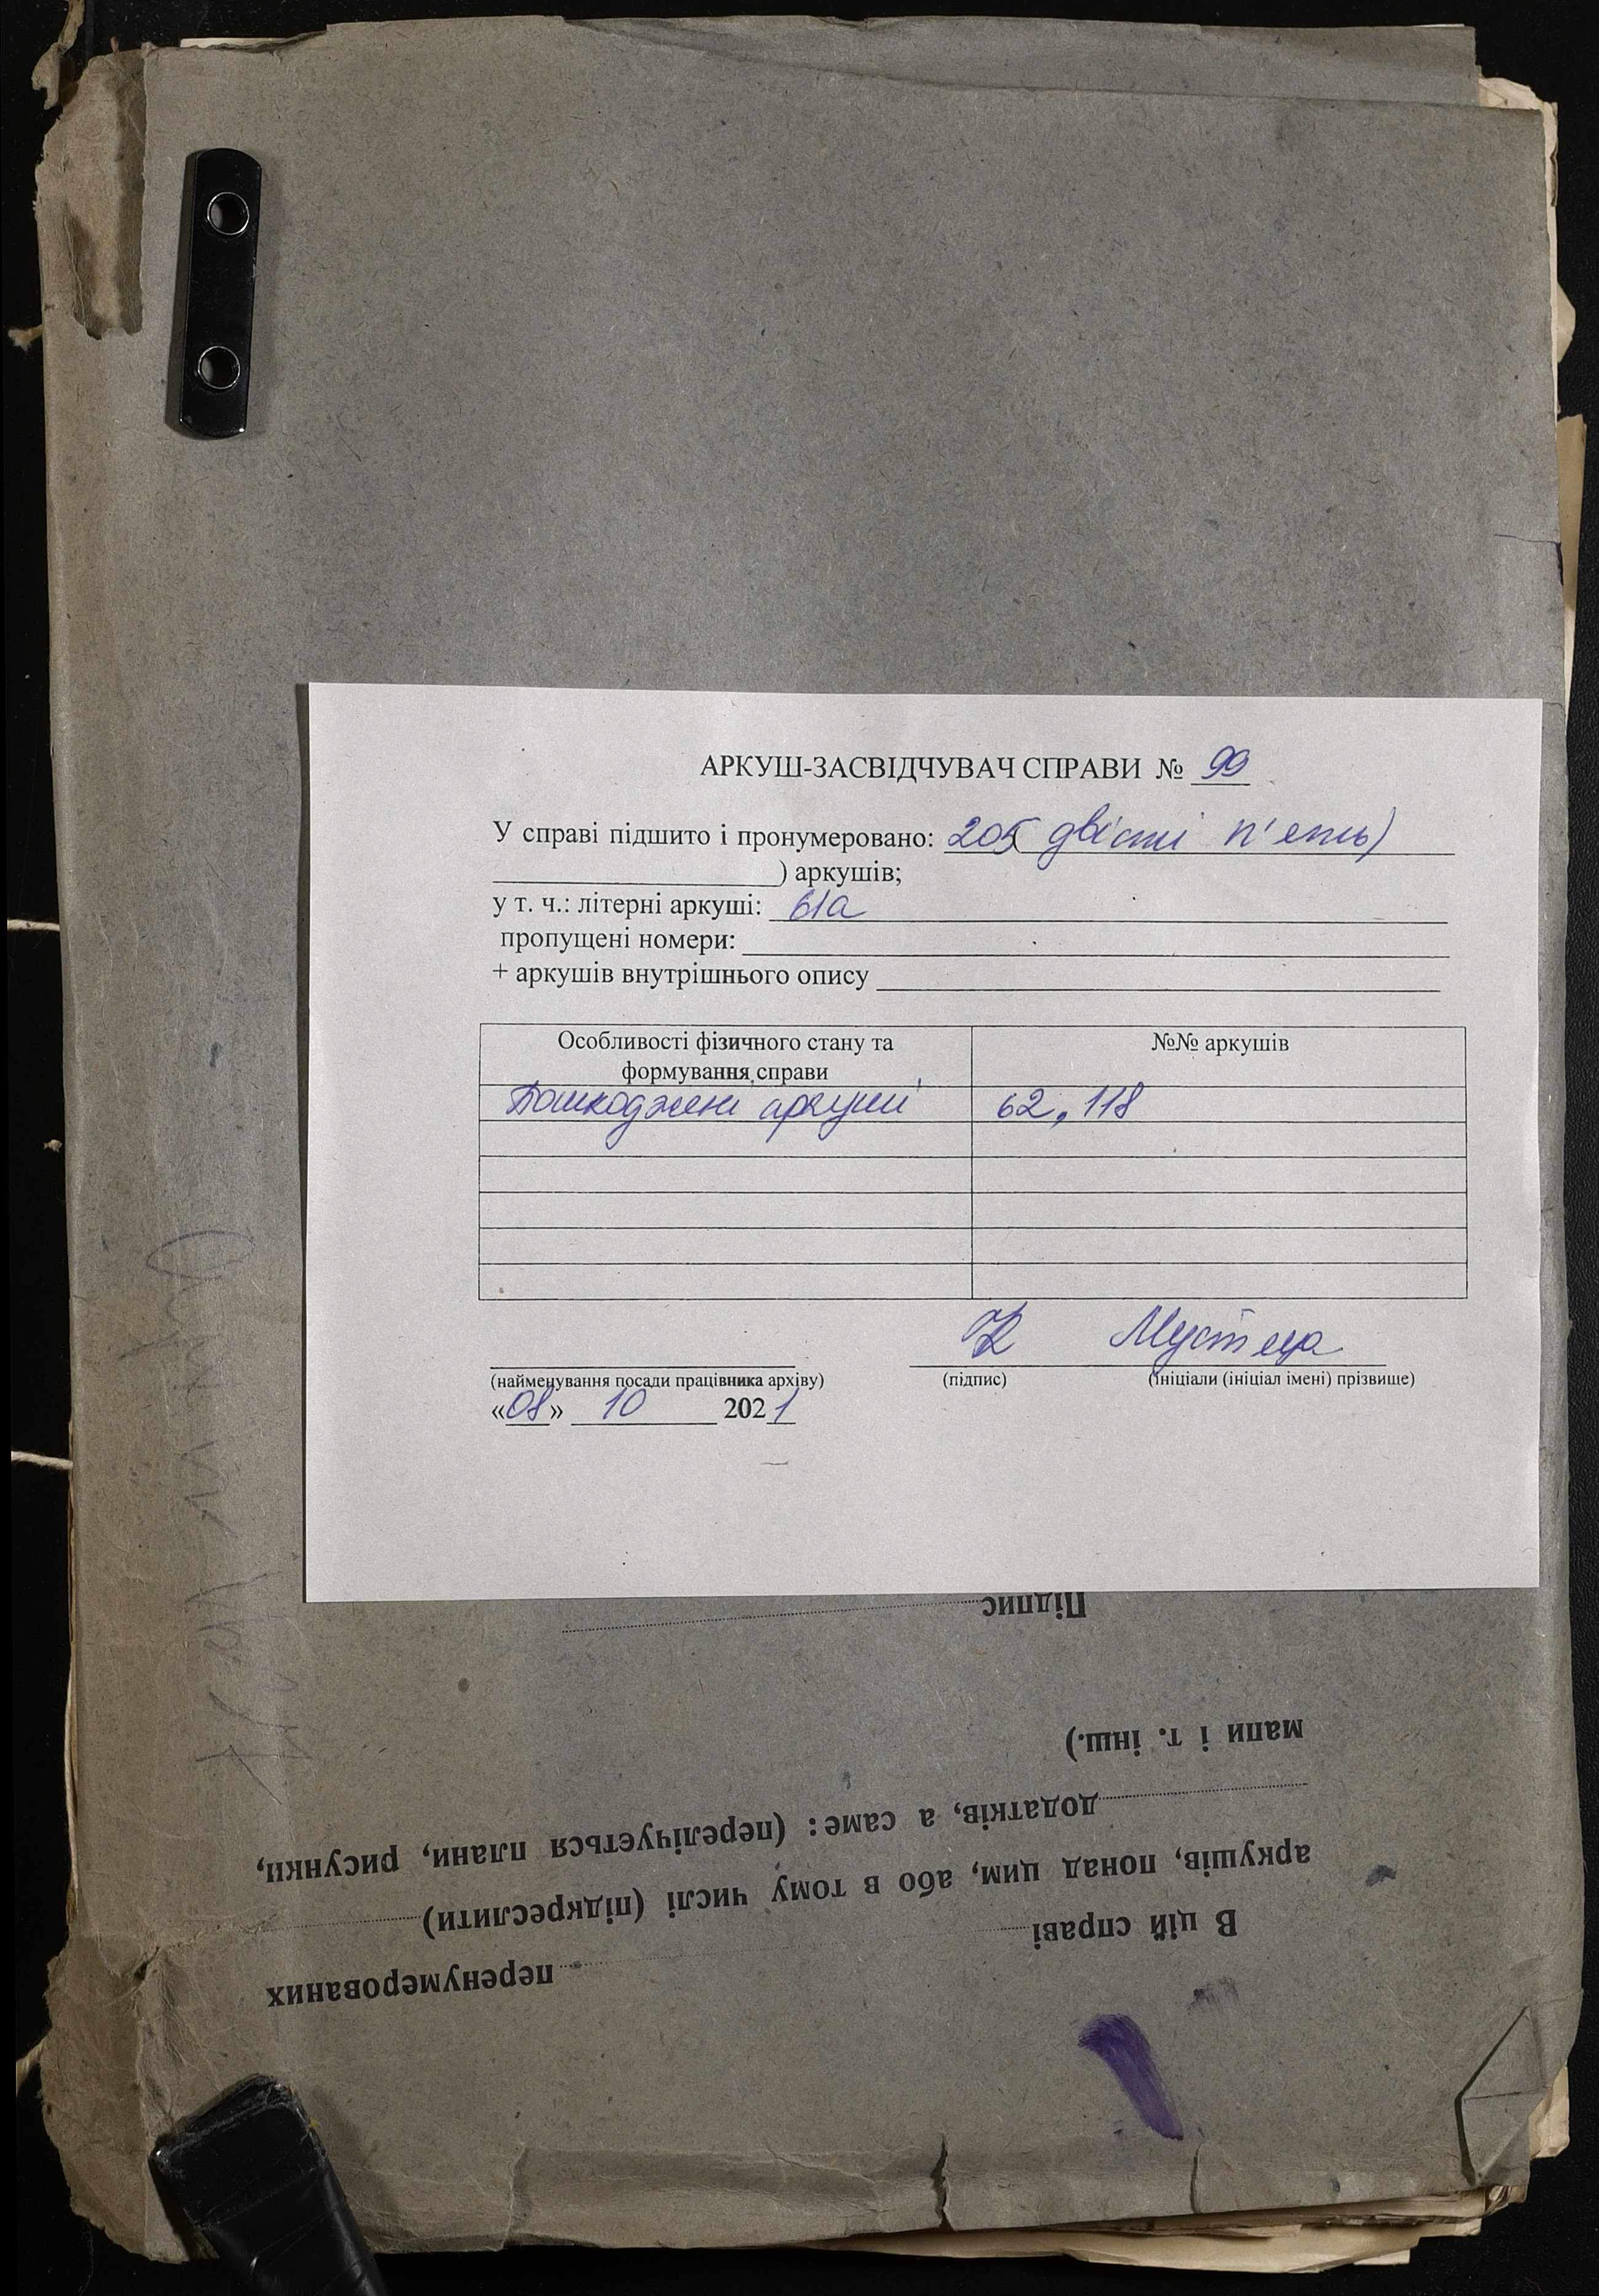 АРКУШ-ЗАСВІДЧУВАЧ СПРАВИ № 99
У справі підшито і пронумеровано: 205( двісті п'ять)
) аркушів;
у т. ч.: літерні аркуші: 61а
пропущені номери:
+ аркушів внутрішнього опису
Особливості фізичного стану та формування справи
№№ аркушів
Пошкоджені аркуші
62, 118
Мустеца
(найменування посади працівника архіву)
(підпис)
(ініціали (ініціал імені) прізвище)
«08» 10 2021
В цій справі
перенумерованих
аркушів, понад цим, або в тому числі (підкреслити)
додатків, а саме: (перелічується плани, рисунки,
мапи і т. інш.)
Підпис